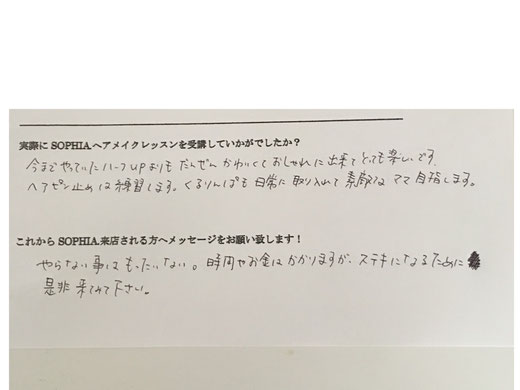 実際に SOPHIA.ヘアメイクレッスンを受講していかがでしたか？
今までやっていたハーフupよりもだんぜんかわいくておしゃれに出来てとっても楽しいです。
ヘアピン止めは練習します。くるりんぱも日常に取り入れて素敵なママ目指します。
これから SOPHIA.来店される方へメッセージをお願い致します！
やらない事はもったいない。時間やお金はかかりますが、ステキになるために
是非来てみて下さい。